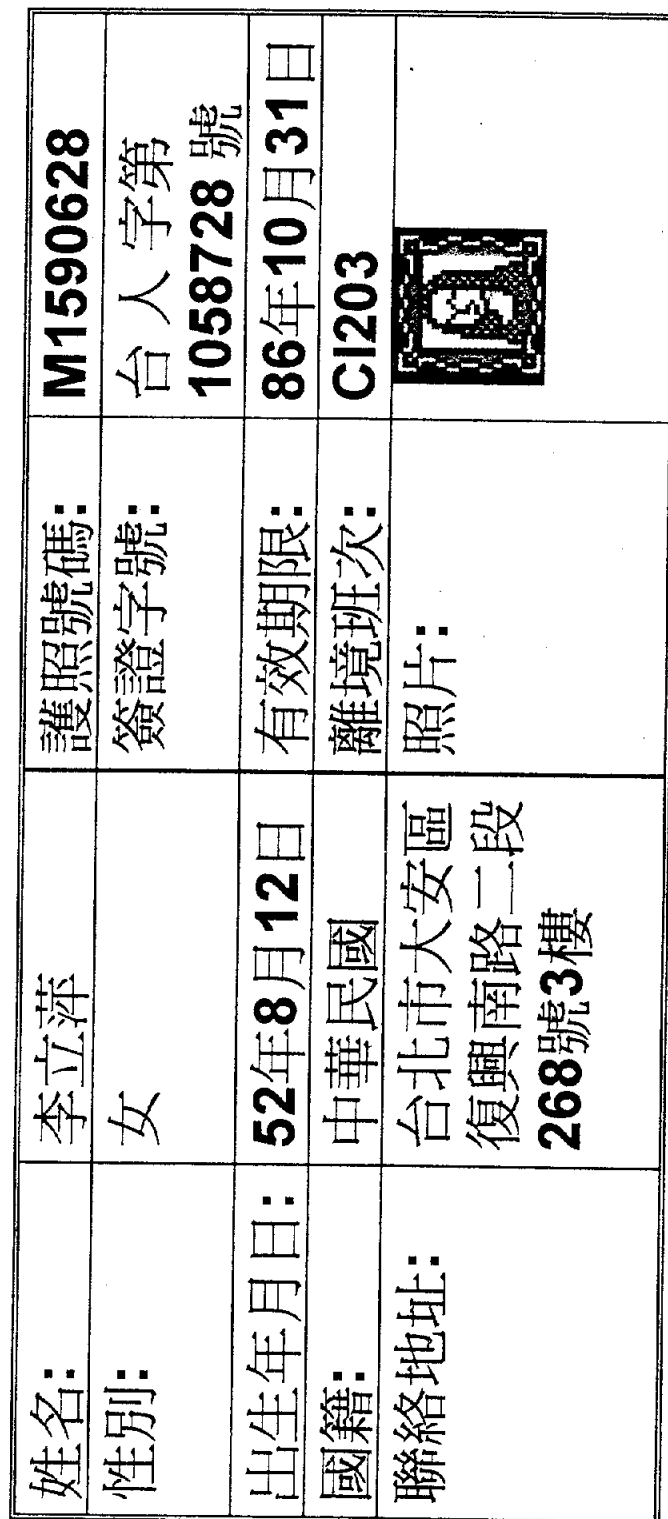 姓名: 李立萍 護照號碼: M1590628
性別: 女 簽證字號: 台人字第
1058728 號
出生年月日: 52年8月12日 有效期限: 86年10月31日
國籍: 中華民國 離境班次: CI203
聯絡地址: 台北市大安區 照片:
復興南路二段
268號3樓